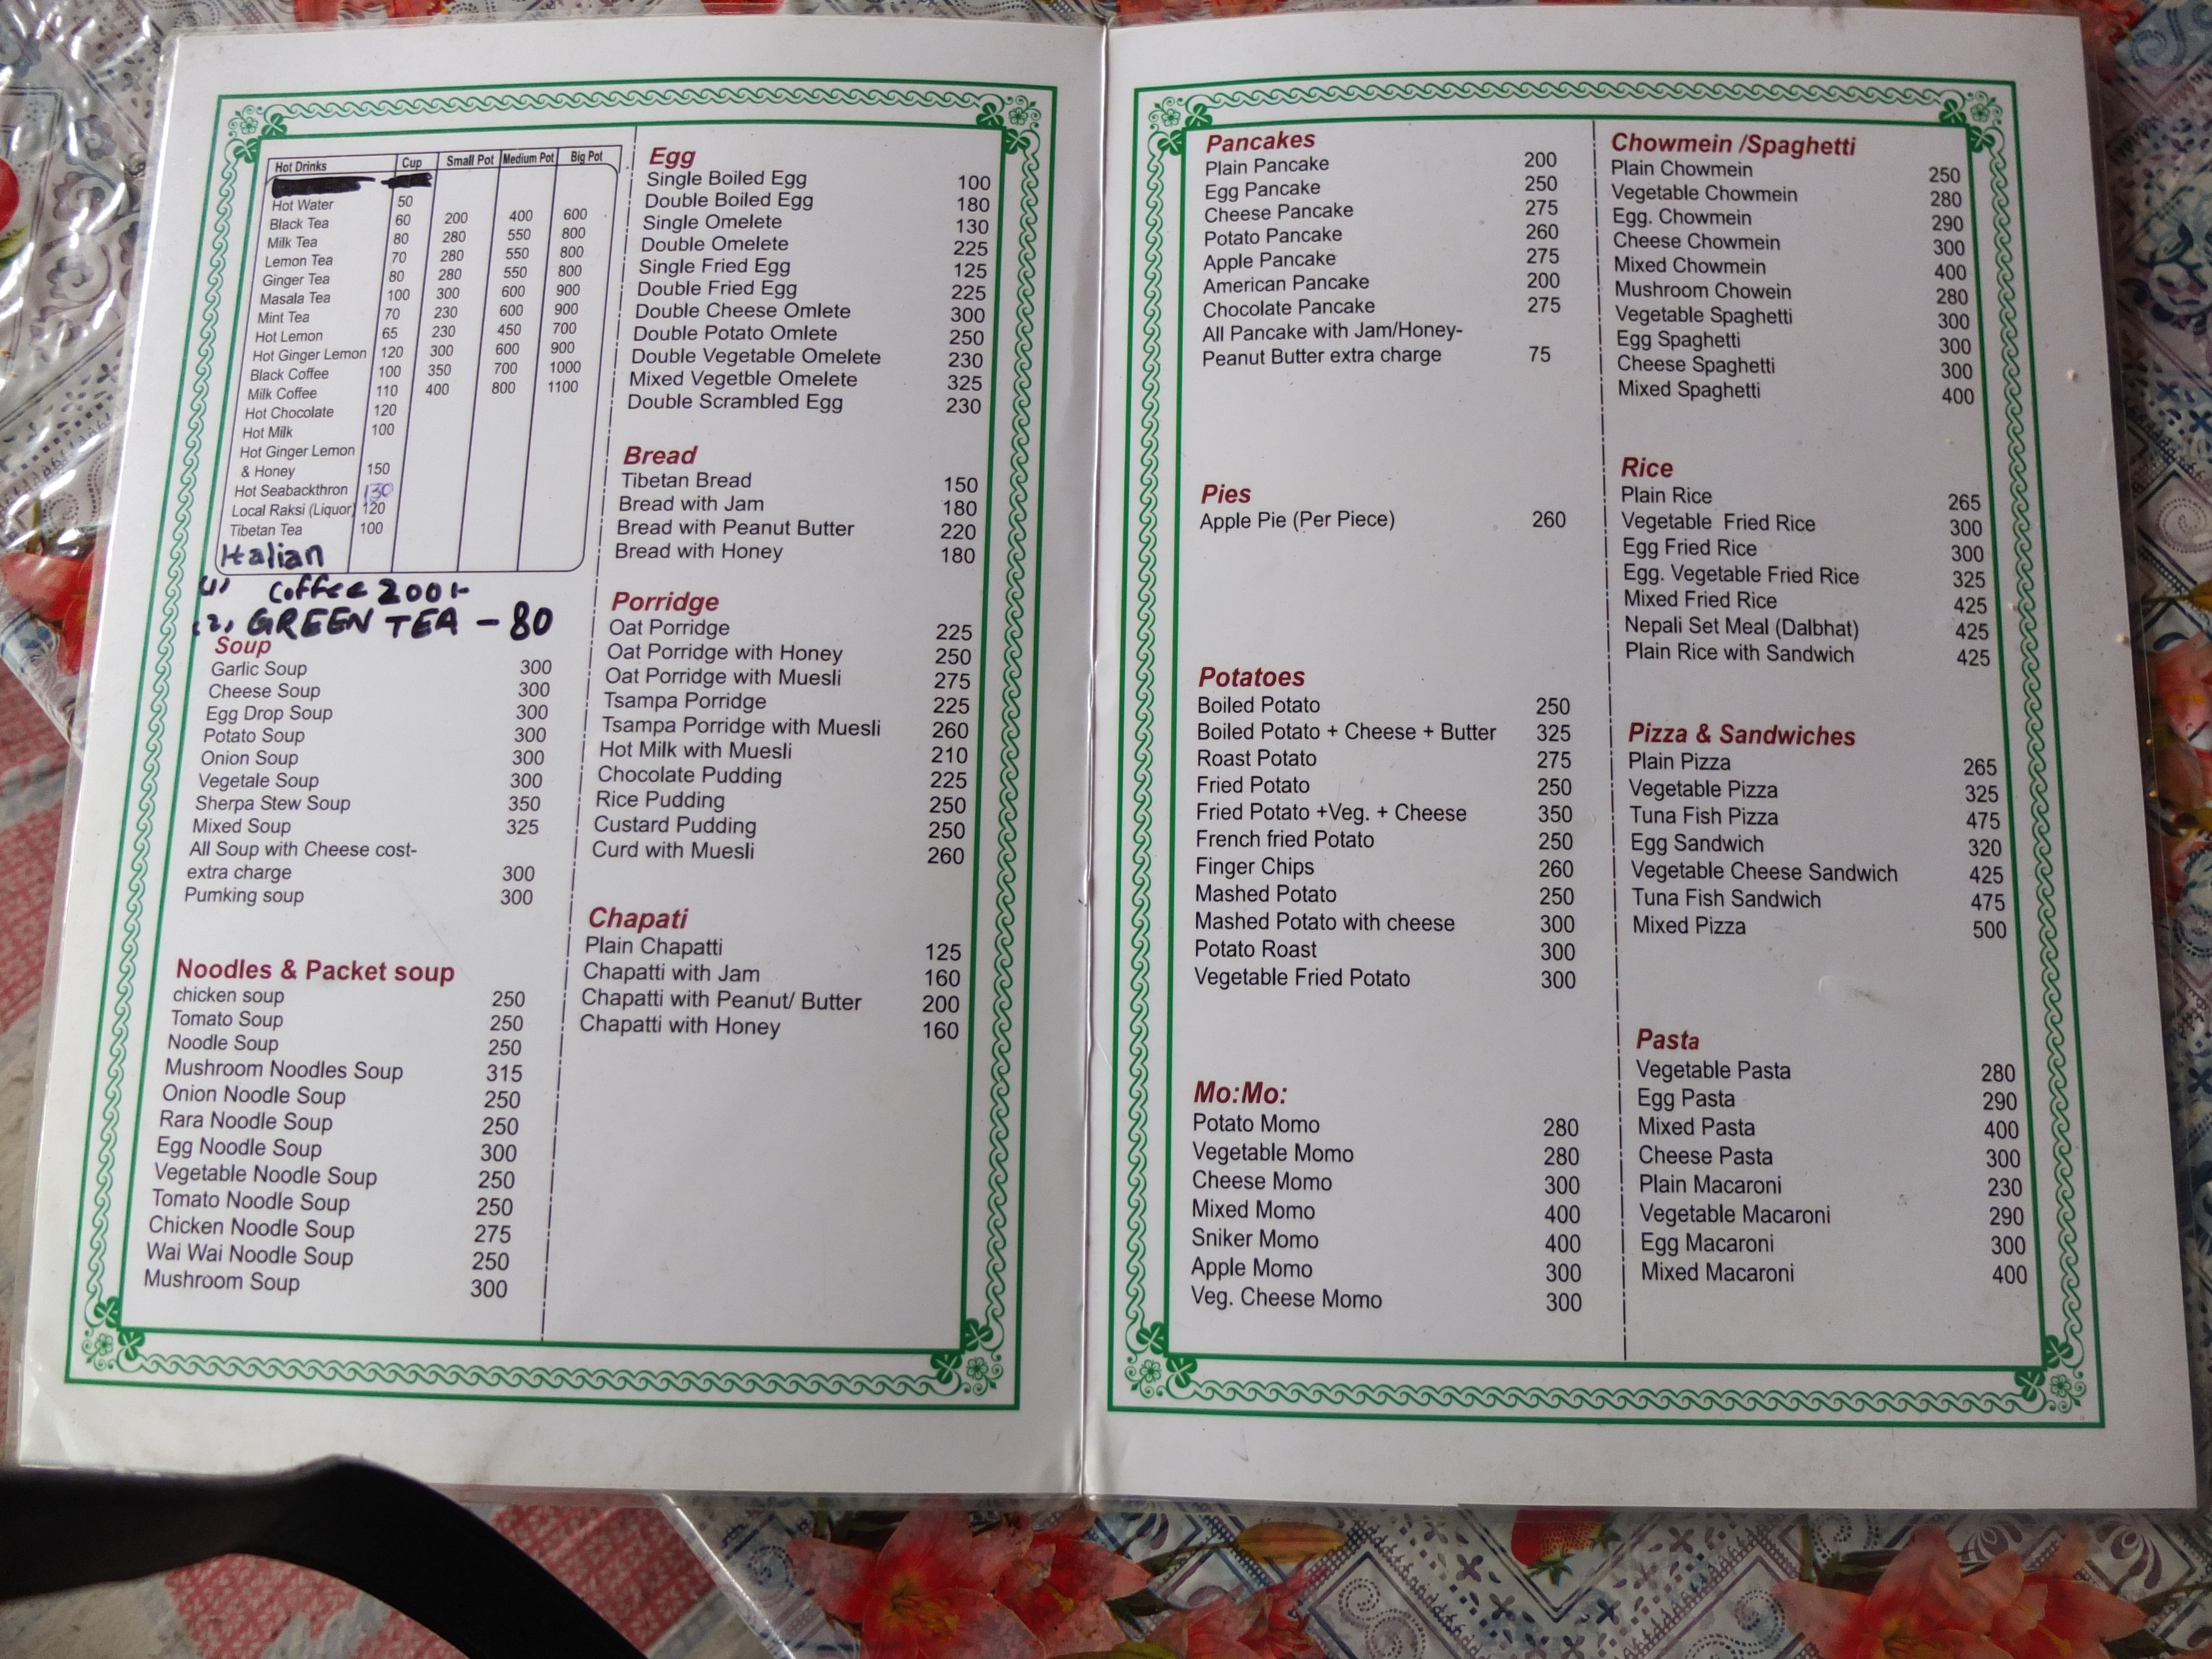 Hot Drinks Cup Small Pot Medium Pot Big Pot
Hot Water 50
Black Tea 60 200 400 600
Milk Tea 80 280 550 800
Lemon Tea 70 280 550 800
Ginger Tea 80 280 550 800
Masala Tea 100 300 600 900
Mint Tea 70 230 600 900
Hot Lemon 65 230 450 700
Hot Ginger Lemon 120 300 600 900
Black Coffee 100 350 700 1000
Milk Coffee 110 400 800 1100
Hot Chocolate 120
Hot Milk 100
Hot Ginger Lemon
& Honey 150
Hot Seabackthron 130
Local Raksi (Liquor) 120
Tibetan Tea 100
Italian
(1) Coffee 200/-
(2) GREEN TEA - 80
Soup
Garlic Soup 300
Cheese Soup 300
Egg Drop Soup 300
Potato Soup 300
Onion Soup 300
Vegetale Soup 300
Sherpa Stew Soup 350
Mixed Soup 325
All Soup with Cheese cost-
extra charge 300
Pumking soup 300
Noodles & Packet soup
chicken soup 250
Tomato Soup 250
Noodle Soup 250
Mushroom Noodles Soup 315
Onion Noodle Soup 250
Rara Noodle Soup 250
Egg Noodle Soup 300
Vegetable Noodle Soup 250
Tomato Noodle Soup 250
Chicken Noodle Soup 275
Wai Wai Noodle Soup 250
Mushroom Soup 300
Egg
Single Boiled Egg 100
Double Boiled Egg 180
Single Omelete 130
Double Omelete 225
Single Fried Egg 125
Double Fried Egg 225
Double Cheese Omlete 300
Double Potato Omlete 250
Double Vegetable Omelete 230
Mixed Vegetble Omelete 325
Double Scrambled Egg 230
Bread
Tibetan Bread 150
Bread with Jam 180
Bread with Peanut Butter 220
Bread with Honey 180
Porridge
Oat Porridge 225
Oat Porridge with Honey 250
Oat Porridge with Muesli 275
Tsampa Porridge 225
Tsampa Porridge with Muesli 260
Hot Milk with Muesli 210
Chocolate Pudding 225
Rice Pudding 250
Custard Pudding 250
Curd with Muesli 260
Chapati
Plain Chapatti 125
Chapatti with Jam 160
Chapatti with Peanut/ Butter 200
Chapatti with Honey 160
Pancakes
Plain Pancake 200
Egg Pancake 250
Cheese Pancake 275
Potato Pancake 260
Apple Pancake 275
American Pancake 200
Chocolate Pancake 275
All Pancake with Jam/Honey-
Peanut Butter extra charge 75
Pies
Apple Pie (Per Piece) 260
Potatoes
Boiled Potato 250
Boiled Potato + Cheese + Butter 325
Roast Potato 275
Fried Potato 250
Fried Potato +Veg. + Cheese 350
French fried Potato 250
Finger Chips 260
Mashed Potato 250
Mashed Potato with cheese 300
Potato Roast 300
Vegetable Fried Potato 300
Mo:Mo:
Potato Momo 280
Vegetable Momo 280
Cheese Momo 300
Mixed Momo 400
Sniker Momo 400
Apple Momo 300
Veg. Cheese Momo 300
Chowmein /Spaghetti
Plain Chowmein 250
Vegetable Chowmein 280
Egg. Chowmein 290
Cheese Chowmein 300
Mixed Chowmein 400
Mushroom Chowein 280
Vegetable Spaghetti 300
Egg Spaghetti 300
Cheese Spaghetti 300
Mixed Spaghetti 400
Rice
Plain Rice 265
Vegetable Fried Rice 300
Egg Fried Rice 300
Egg. Vegetable Fried Rice 325
Mixed Fried Rice 425
Nepali Set Meal (Dalbhat) 425
Plain Rice with Sandwich 425
Pizza & Sandwiches
Plain Pizza 265
Vegetable Pizza 325
Tuna Fish Pizza 475
Egg Sandwich 320
Vegetable Cheese Sandwich 425
Tuna Fish Sandwich 475
Mixed Pizza 500
Pasta
Vegetable Pasta 280
Egg Pasta 290
Mixed Pasta 400
Cheese Pasta 300
Plain Macaroni 230
Vegetable Macaroni 290
Egg Macaroni 300
Mixed Macaroni 400